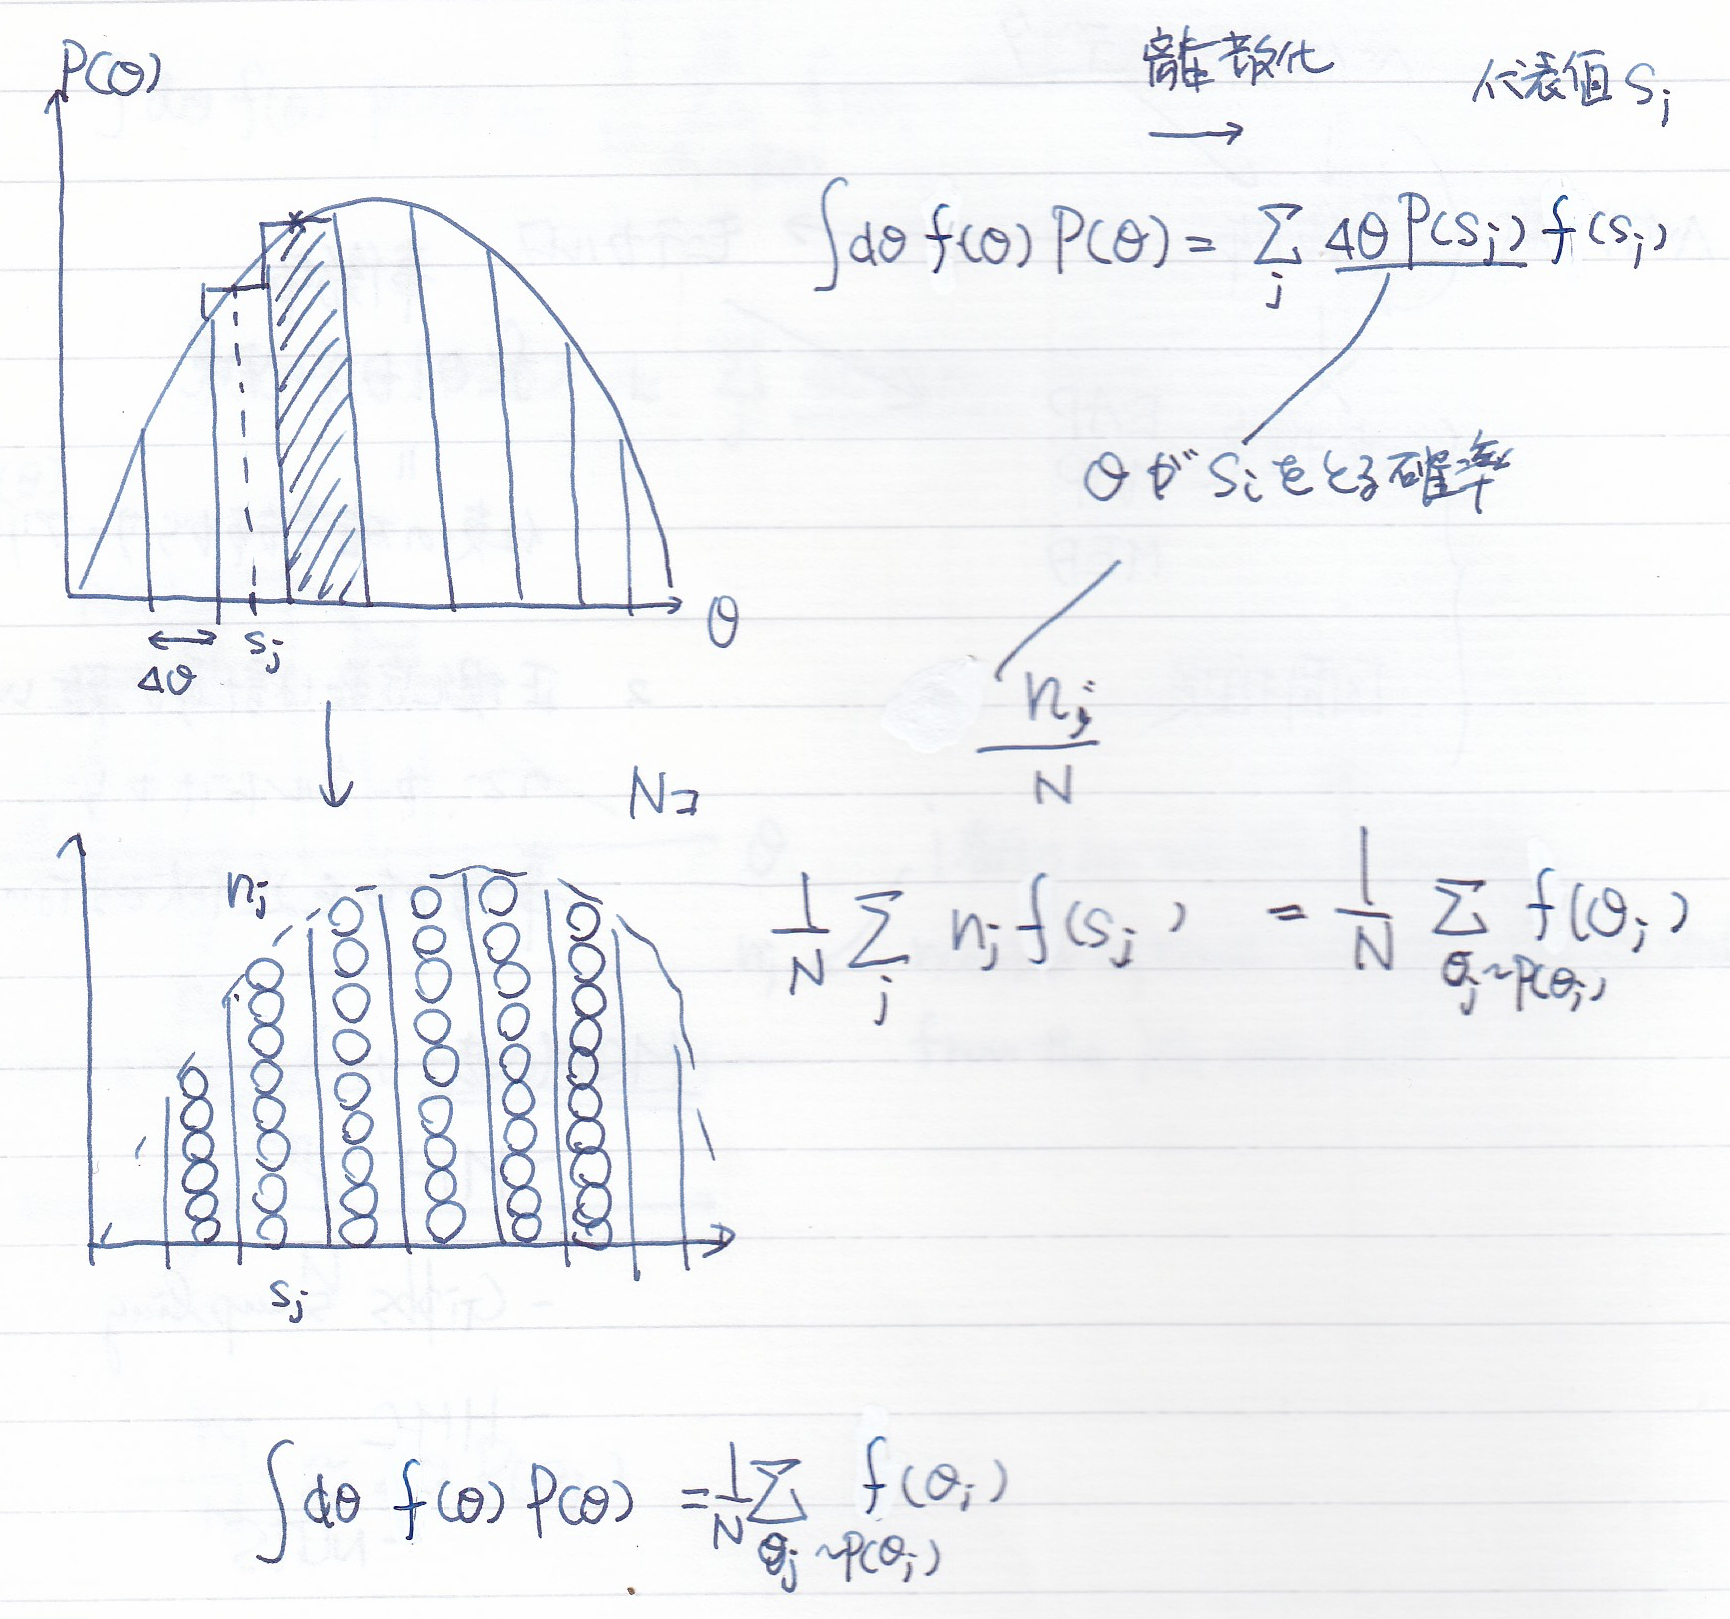 P(θ)
離散化 代表値 Sj
→
∫dθ f(θ) P(θ) = Σ_j Δθ P(Sj) f(Sj)
θ が Si をとる確率
θ
Δθ Sj
nj/N
Nコ
nj
1/N Σ_j nj f(Sj) = 1/N Σ_{θj~P(θj)} f(θj)
Sj
∫dθ f(θ) P(θ) = 1/N Σ_{θj~P(θj)} f(θj)